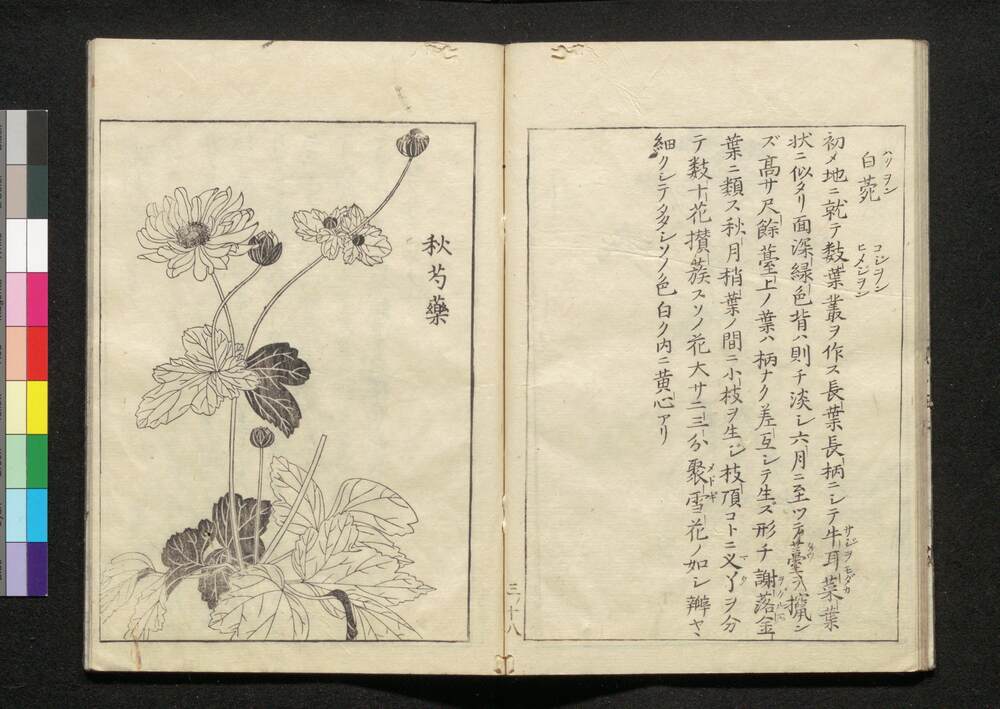 白菀 ハリヲン コンヲン ヒメジヲン
初メ地ニ就テ數葉叢ヲ作ス長葉長柄ニシテ牛耳菜葉 サジヲモダカ
状ニ似タリ面深緑色背ハ則チ淡シ六月ニ至ツテ薹ヲ擢ン
ズ高サ尺餘薹上ノ葉ハ柄ナク差互シテ生ズ形チ謝落金
葉ニ類ス秋月梢葉ノ間ニ小枝ヲ生シ枝頂コトニ义丫ヲ分
テ数十花攅蔟スソノ花大サ二三分聚雪花ノ如シ瓣ヤヽ メドギ
細クシテ多シソノ色白ク内ニ黄心アリ
秋芍藥
三ノ十八